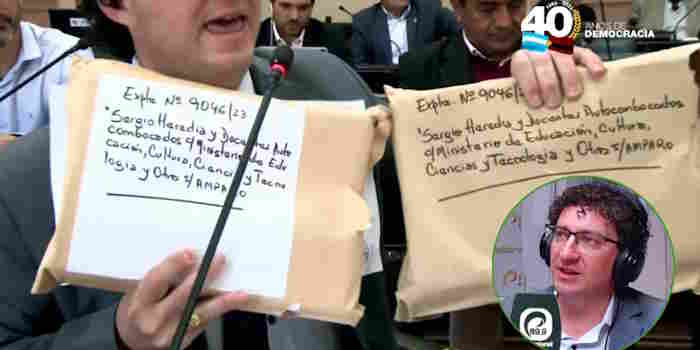 40 AÑOS DE
DEMOCRACIA
Expte Nº 9046/23
"Sergio Heredia y Docentes Auto
combocados c/Ministerio de Edu
cación, Cultura, Ciencia y Tecno
logia y Otro s/AMPARO
Expte Nº 9046/23
"Sergio Heredia y Docentes Autocombocados
c/Ministerio de Educación, Cultura,
Ciencias y Tecnología y Otros s/AMPARO
89.9